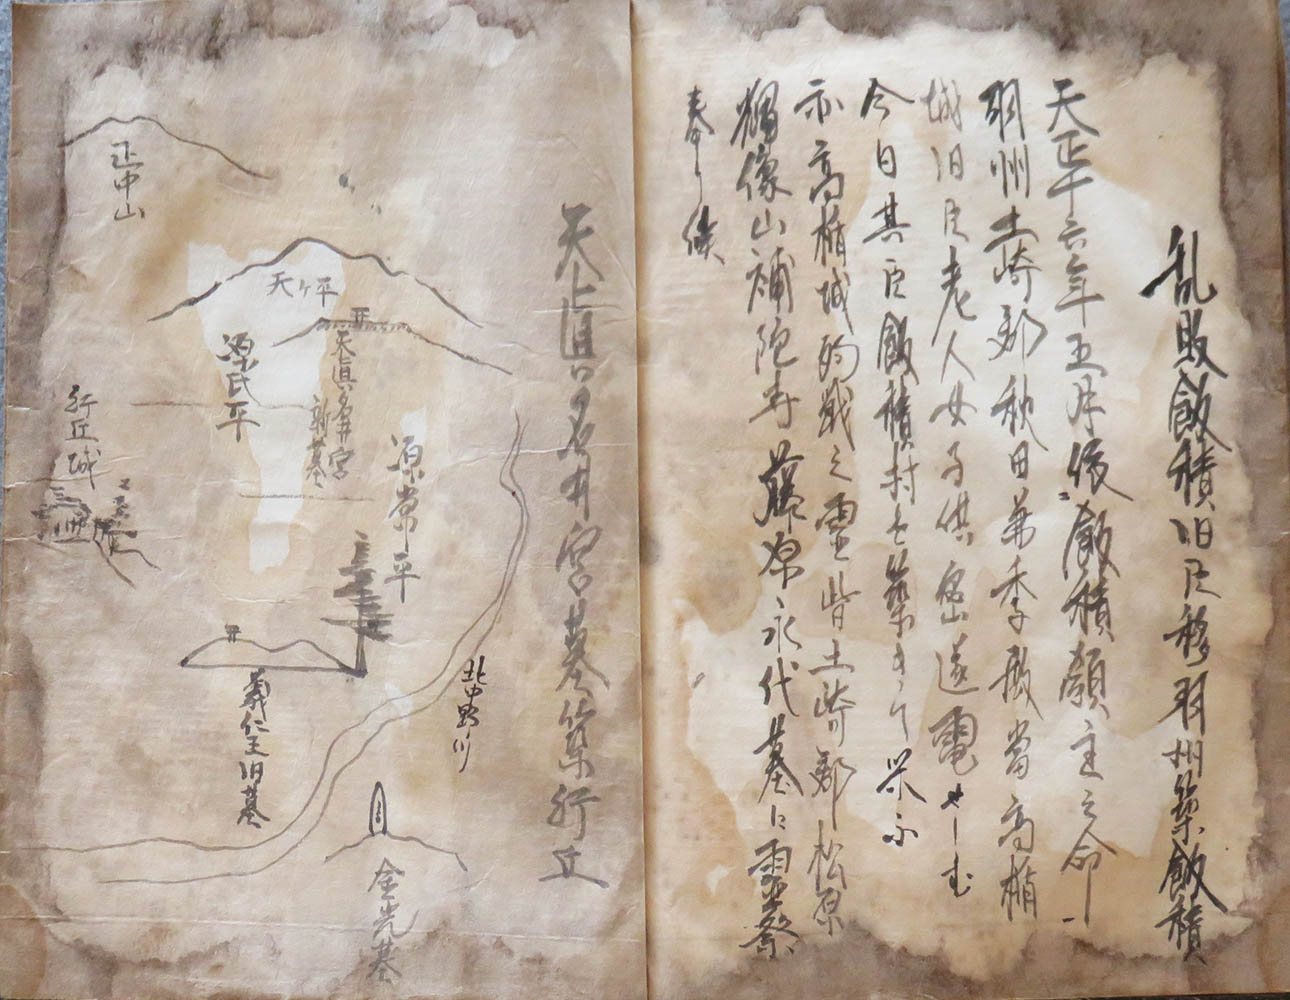 乱敗飯積旧臣移羽州築飯積
天正十六年五月後飯積領主之命
羽州土崎郡秋田兼季殿當高楯
城旧臣老人女子供
今日其臣飯積村を築きて栄ふ
亦高楯城殉戦之霊皆土崎郡松原
山補陀寺藤原永代墓に霊祭
奉り候
天眞名井宮墓築行丘
正中山
天ヶ平
天眞名井宮
新墓
源氏平
源常平
行丘城
北中野川
義仁王旧墓
金光墓